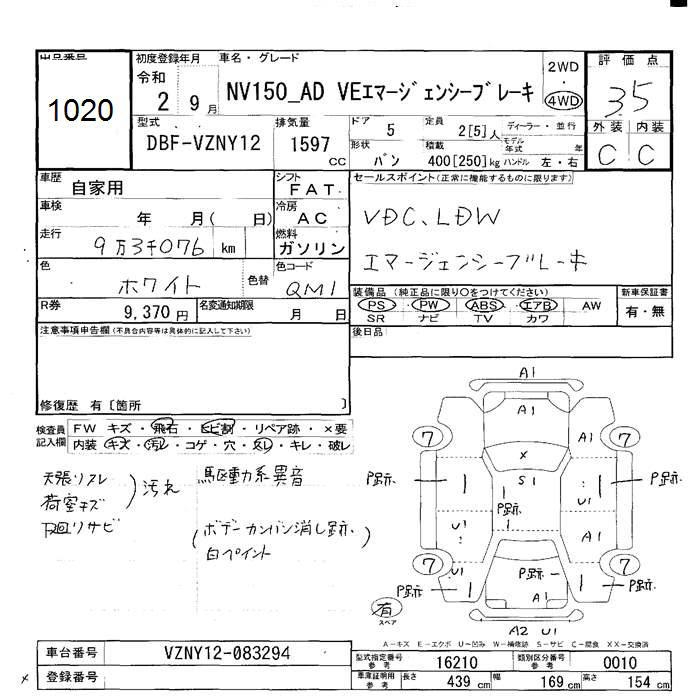 出品番号
1020
初度登録年月
令和
2 9月
車名・グレード
NV150_AD VEエマージェンシーブレーキ
2WD
・
4WD
評価点
35
外装 内装
C C
型式
DBF-VZNY12
排気量
1597
cc
ドア
5
定員
2[5]人
ディーラー・並行
形状
バン
積載
400[250]kg
モデル年式 年
ハンドル 左・右
車歴
自家用
シフト
FAT
車検
年 月( 日)
冷房
AC
走行
9万3千076 km
燃料
ガソリン
色
ホワイト
色替
色コード
QM1
R券
9,370円
名変通知期限
月 日
セールスポイント(正常に機能するものに限ります)
VDC、LDW
エマージェンシーブレーキ
装備品(純正品に限り○をつけてください)
PS PW ABS エアB AW
SR ナビ TV カワ
新車保証書
有・無
後日品
注意事項申告欄(不具合内容等は具体的に記入して下さい)
修復歴 有〔箇所 〕
検査員記入欄
FW キズ・飛石・ヒビ割・リペア跡・×要
内装 キズ・汚レ・コゲ・穴・スレ・キレ・破レ
天張リスレ
荷室キズ
下廻リサビ
)汚れ
駆動系異音
(ボデーカンバン消し跡、
白ペイント
A1
A1
7
A1
7
X
P跡
S1
P跡
P跡
U1
U1
A1
7
U1
P跡
7
P跡
P跡
A1
有
スペア
A2 U1
A-キズ E-エクボ U-凹み W-補修跡 S-サビ C-腐食 XX-交換済
車台番号
VZNY12-083294
登録番号
型式指定番号
参考
16210
類別区分番号
参考
0010
車庫証明用
参考
長さ 439 cm
幅 169 cm
高さ 154 cm